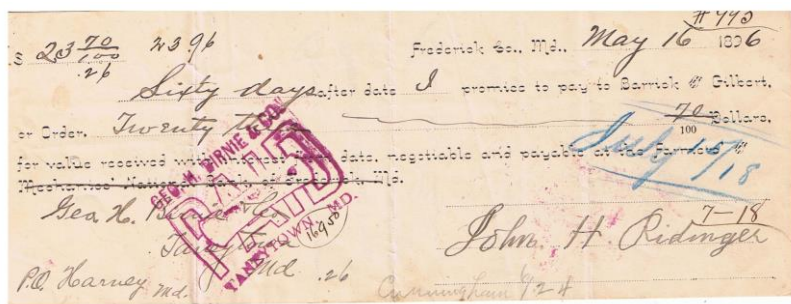 # 993
$ 23 70/100 23.96 Frederick Co., Md., May 16 1896
.26
Sixty days after date I promise to pay to Barrick & Gilbert,
or Order, Twenty three 70/100 Dollars,
for value received with interest from date, negotiable and payable at the Farmers &
Mechanics' National Bank of Frederick, Md.
July 15/18
GEO. H. BIRNIE & CO.
PAID
TANEYTOWN, MD.
Geo. H. Birnie & Co
Taneytown
Md .26
16950
7-18
John H. Ridinger
P.O. Harney Md.
Cunningham 9/24